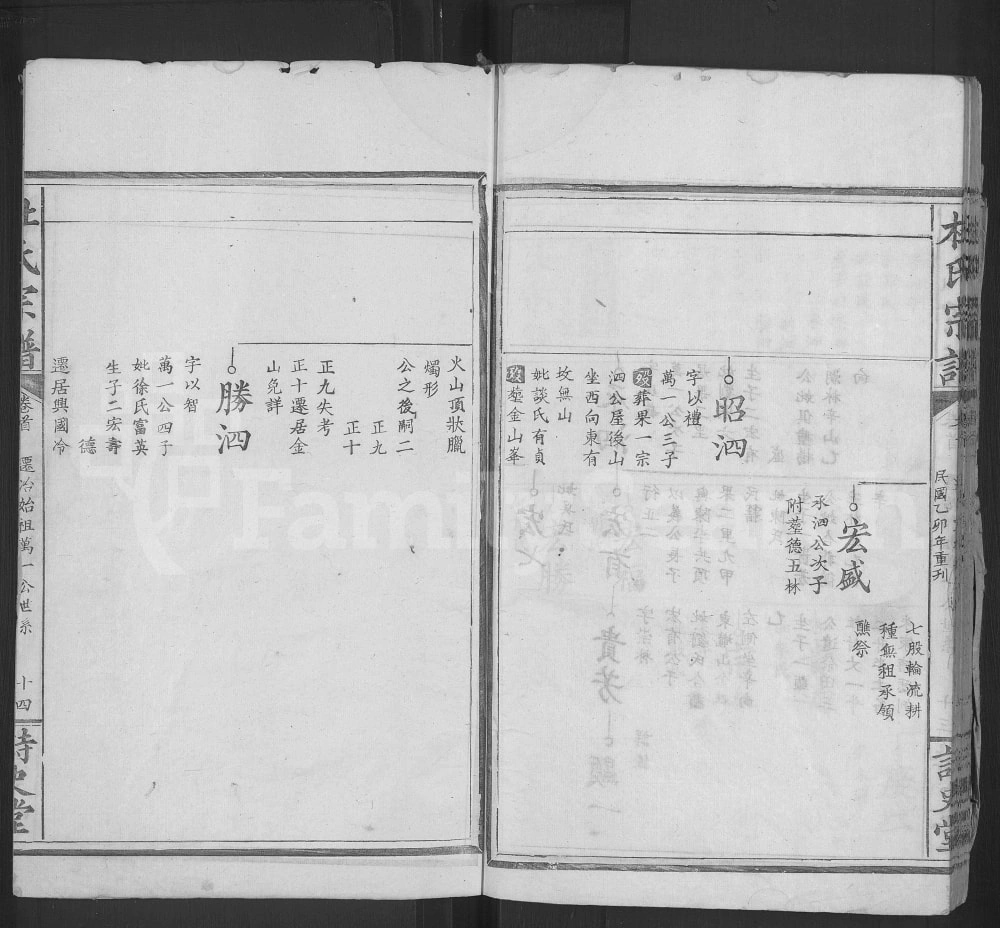 杜氏宗譜
民國乙卯年重刊
詩史堂
七股輪流耕
種無租承領
醮祭
宏盛
承泗公次子
附塟德五林
昭泗
字以禮
萬一公三子
歿葬果一宗
泗公屋後山
坐西向東有
坟無山
妣談氏有貞
歿塟金山峯
火山頂狀臘
燭形
公之後嗣二
正九
正十
正九失考
正十遷居金
山免詳
勝泗
字以智
萬一公四子
妣徐氏富英
生子二宏壽
德
遷居興國冷
杜氏宗譜
卷首
遷冶始祖萬一公世系
十四
詩史堂